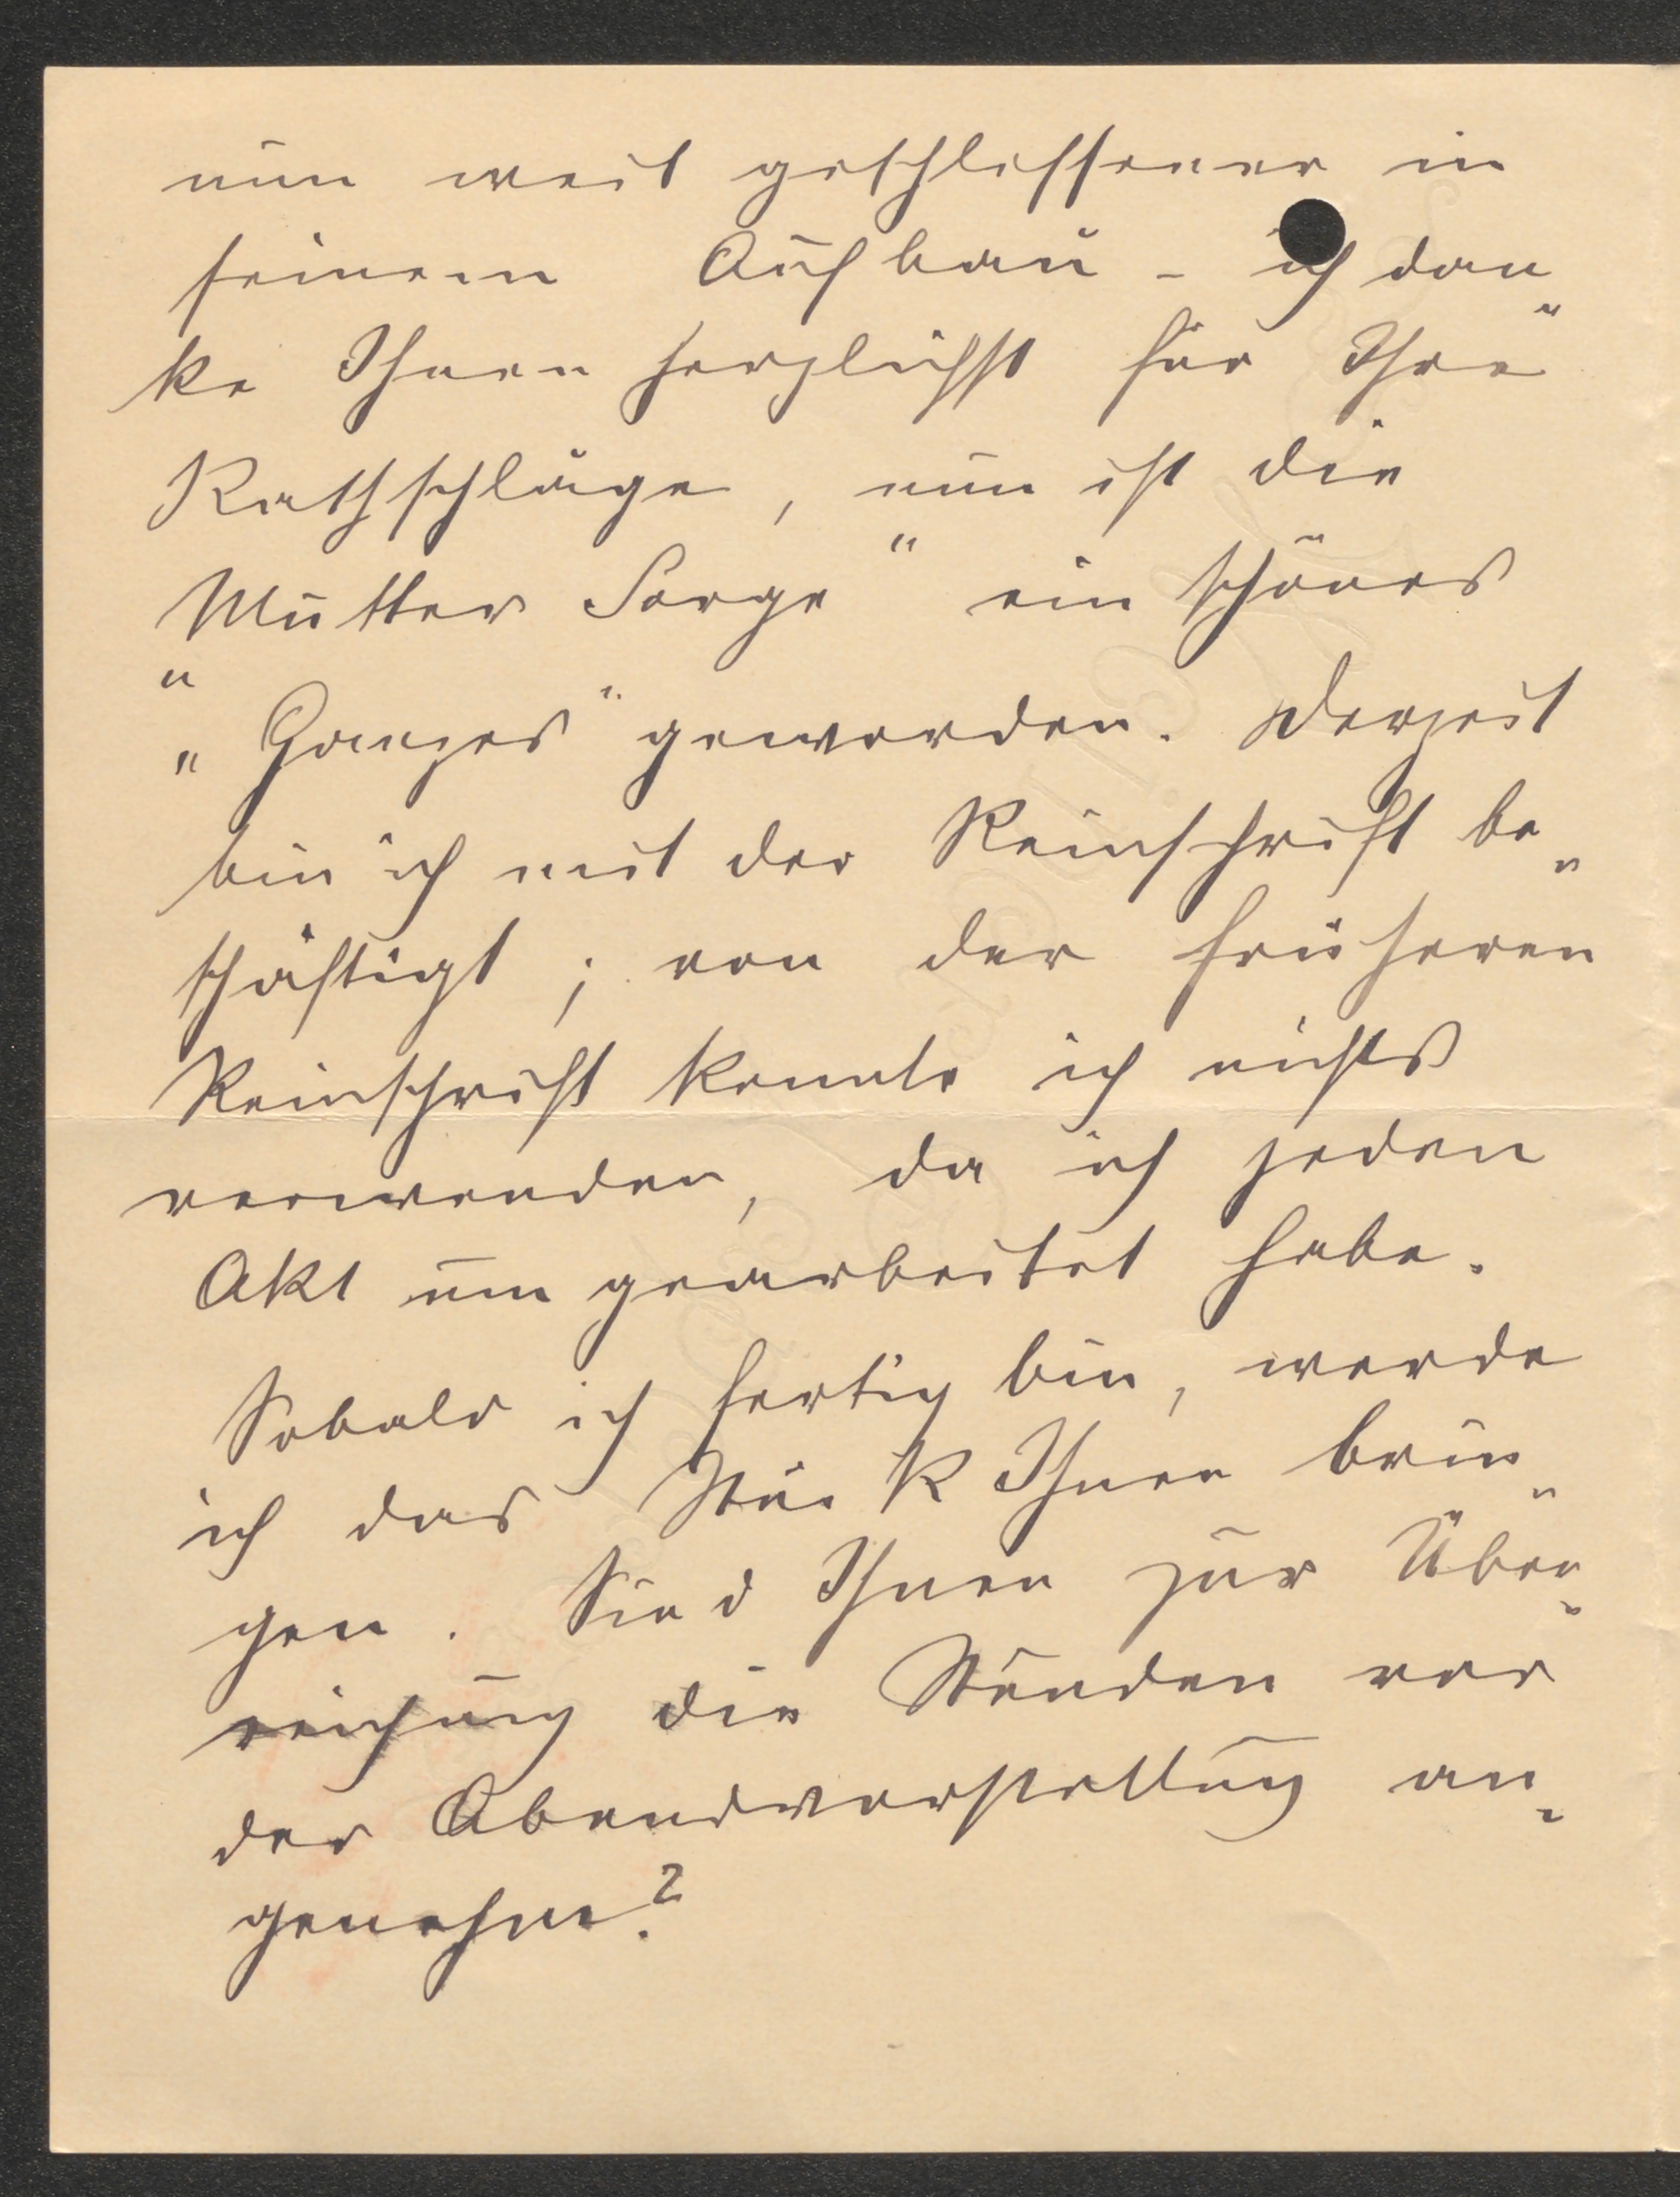 nun weit geschliffener in
seinem Aufbau - ich dan„
ke Ihnen herzlichst für Ihre
Rathschläge, nun ist die
„Mutter Sorge" ein schönes
„Ganzes" geworden. Derzeit
bin ich mit der Reinschrift be„
schäftigt; von der früheren
Reinschrift konnte ich nichts
verwenden, da ich jeden
Akt umgearbeitet habe.
Sobald ich fertig bin, werde
ich das Stück Ihnen brin„
gen. Sind Ihnen zur Über„
reichung die Stunden vor
der Abendvorstellung an„
genehm?